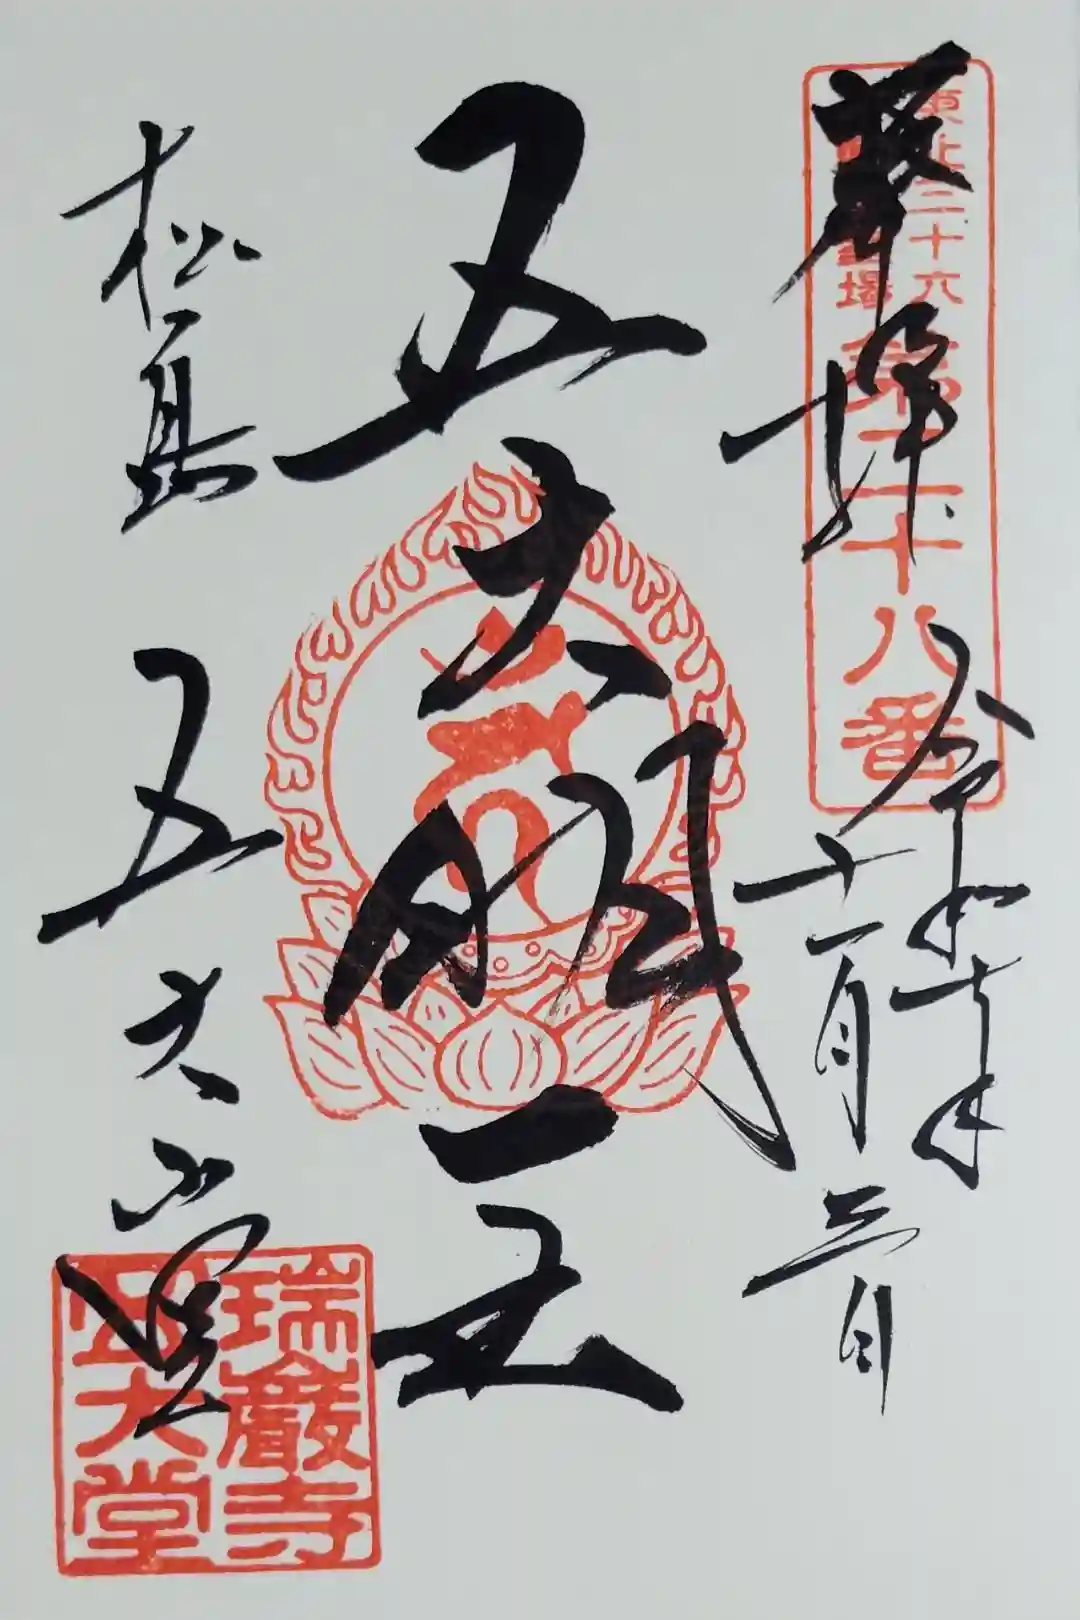 東北三十六
不動尊霊場
第二十八番
奉拝
令和七年
十一月三日
五大明王
松島 五大堂
瑞巖寺
五大堂